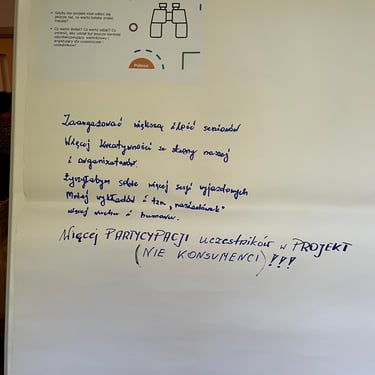 Gdyby ten projekt miał odbyć się
jeszcze raz, co warto byłoby zrobić
inaczej?
Co warto dodać? Co warto odjąć? Co
zmienić, aby udział był jeszcze bardziej
i
angażujący dla uczestniczek i
uczestników?
Patron
Zaangażować większą ilość seniorów
Więcej kreatywności ze strony naszej
i organizatorów.
Życzyłabym sobie więcej sesji wyjazdowych
Mniej wykładów i tzw. „nasiadówek"
więcej ruchu i humoru.
Więcej PARTYCYPACJI uczestników w PROJEKT
(NIE KONSUMENCI)!!!